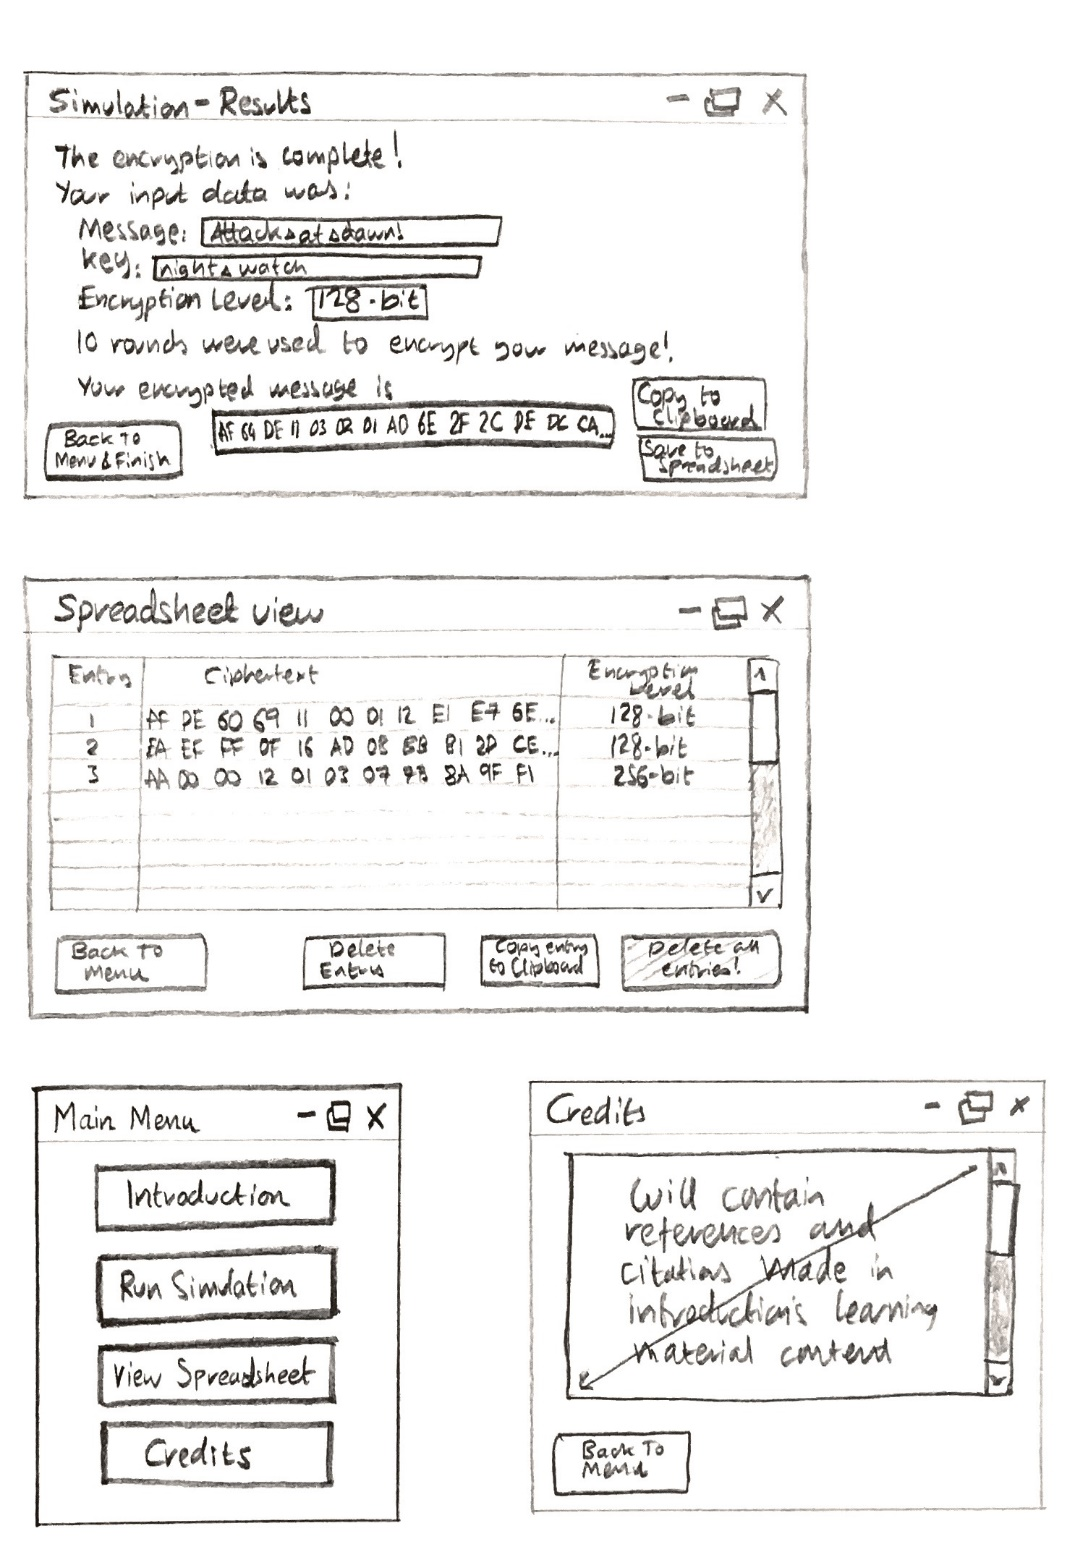 Simulation - Results
The encryption is complete!
Your input data was:
Message: Attack▵at▵dawn!
Key: night▵watch
Encryption Level: 128-bit
10 rounds were used to encrypt your message!
Your encrypted message is
AF 64 DE 11 03 02 01 AD 6E 2F 2C DE DC CA...
Copy to
Clipboard
Save to
Spreadsheet
Back To
Menu & Finish
Spreadsheet view
Entry Ciphertext Encryption
Level
1 AF DE 60 69 11 00 01 12 E1 E7 6E... 128-bit
2 EA EF FF 0F 16 AD 08 BB 81 2D CE... 128-bit
3 AA 00 00 12 01 03 07 8A 9F F1 256-bit
Back To
Menu
Delete
Entry
Copy entry
to Clipboard
Delete all
entries!
Main Menu
Introduction
Run Simulation
View Spreadsheet
Credits
Credits
Will contain
references and
citations made in
introduction's learning
material contend
Back To
Menu